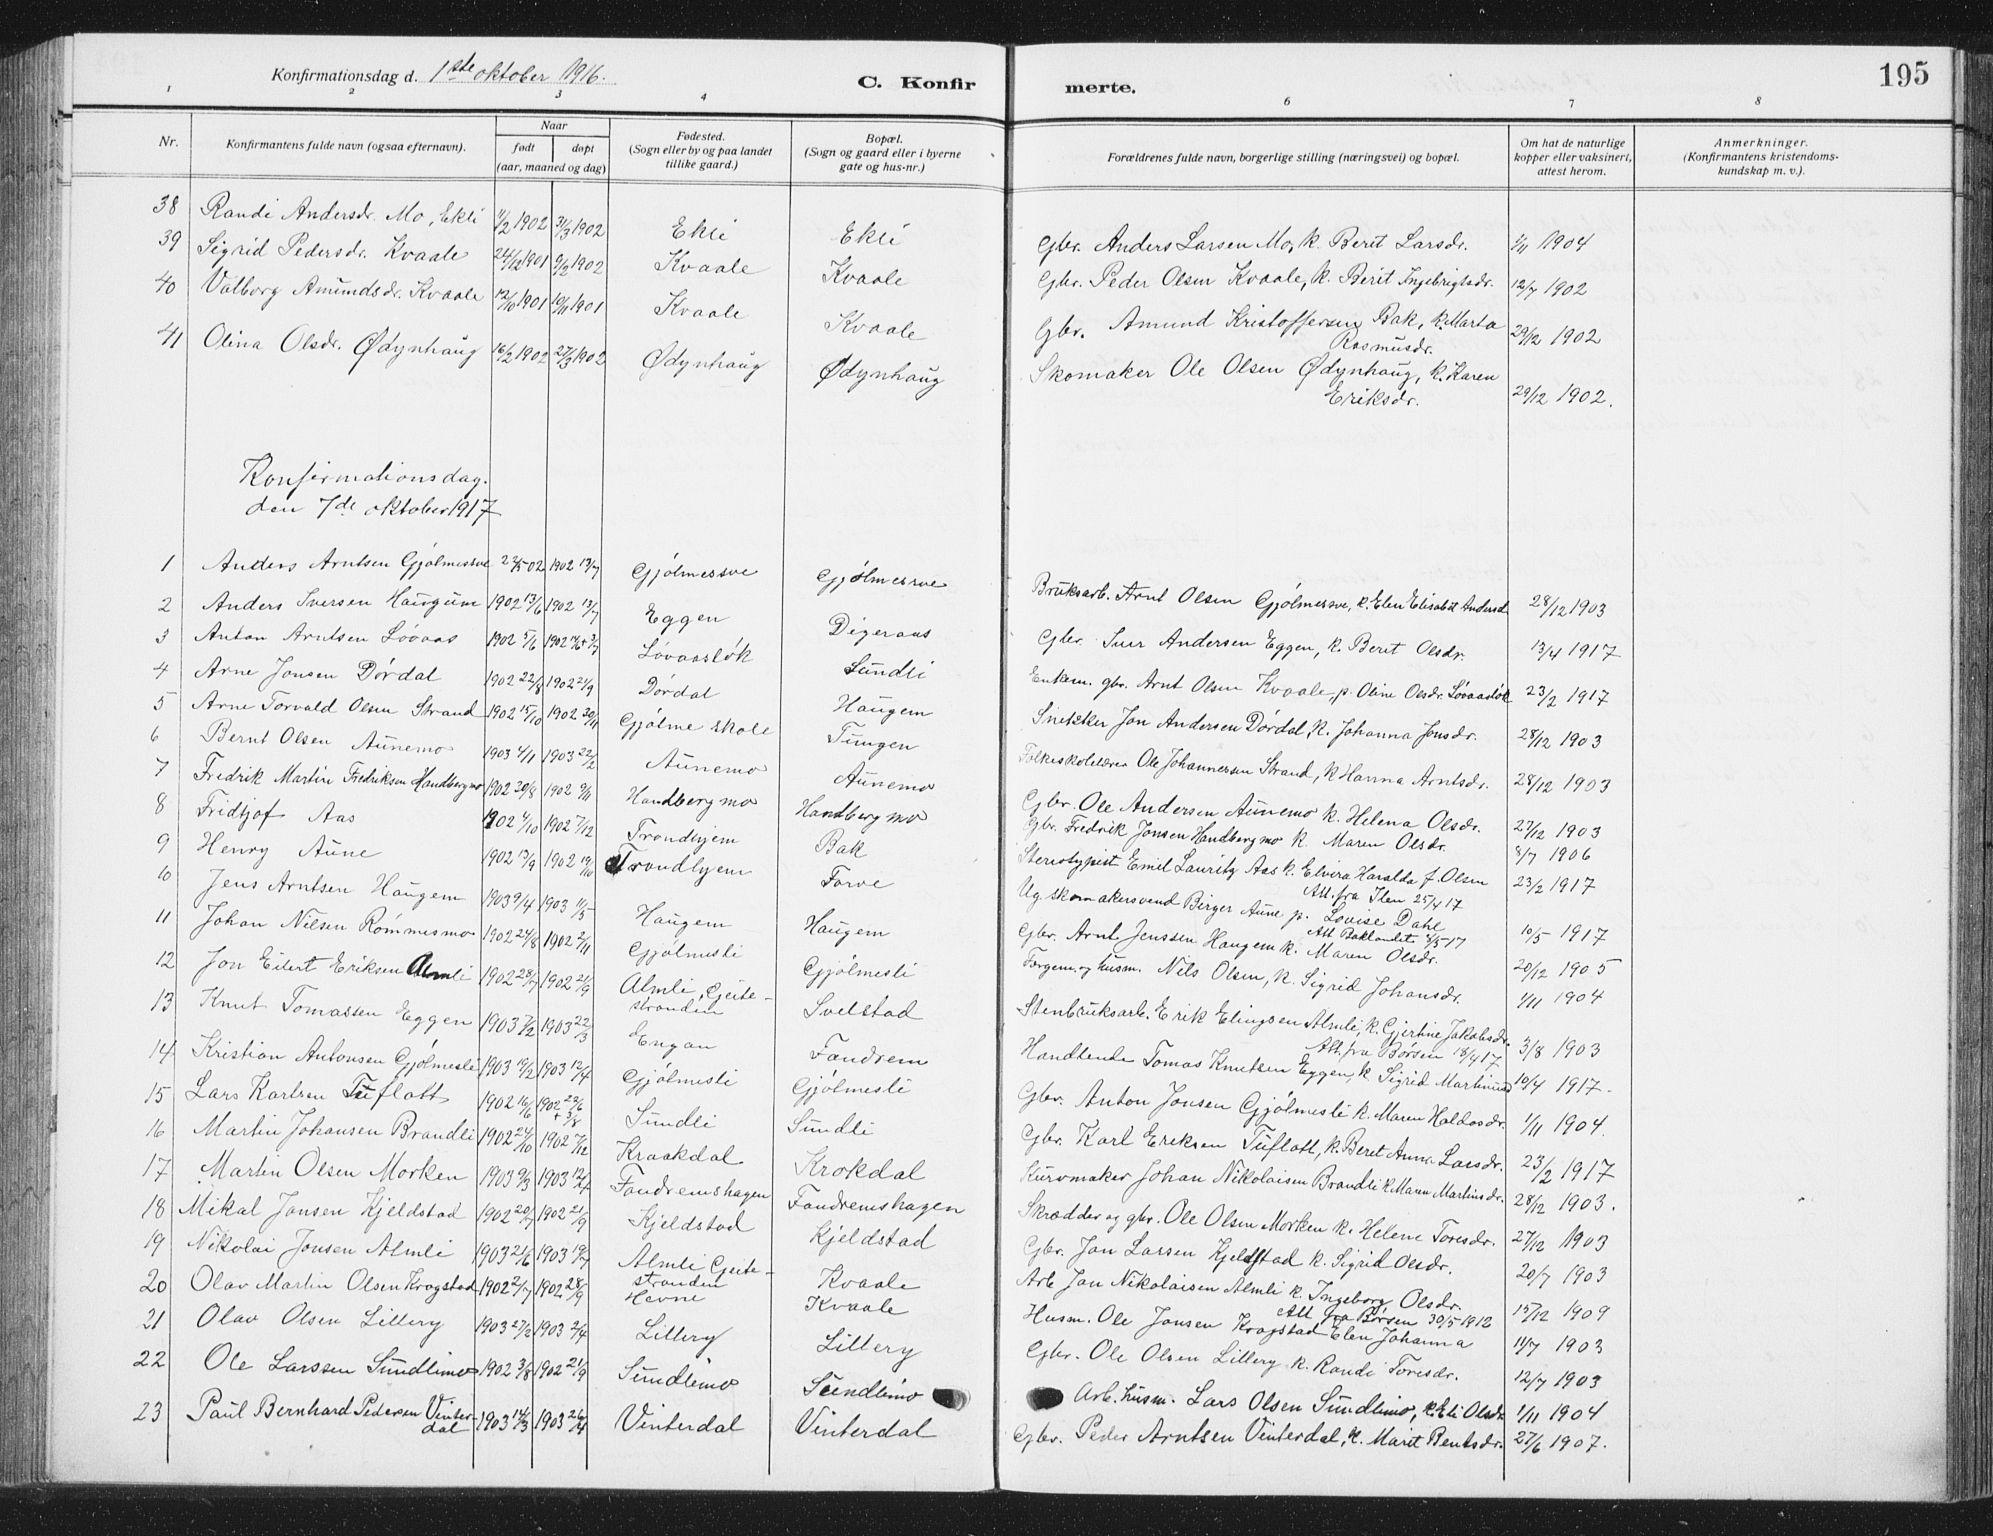 Konfirmationsdag d. 1ste oktober 1916. C. Konfirmerte. 195
1 2 3 4 6 7 8
Nr. Konfirmantens fulde navn (ogsaa efternavn). Naar født døpt (aar, maaned og dag) Fødested. (Sogn eller by og paa landet tillike gaard.) Bopæl. (Sogn og gaard eller i byerne gate og hus-nr.) Forældrenes fulde navn, borgerlige stilling (næringsvei) og bopæl. Om hat de naturlige kopper eller vaksinert, attest herom. Anmerkninger. (Konfirmantens kristendoms- kundskap m. v.).
38 Randi Andersdr. Mo, Ekli 11/2 1902 31/3 1902 Ekli Ekli Gbr. Anders Larsen Mo, k. Berit Larsdr. 1/11 1904
39 Sigrid Pedersdr. Kvaale 24/12 1901 9/2 1902 Kvaale Kvaale Gbr. Peder Olsen Kvaale, k. Berit Ingebrigtsdr. 12/7 1902
40 Valborg Amundsdr. Kvaale 12/10 1901 10/11 1901 Kvaale Kvaale Gbr. Amund Kristoffersen Bak, k. Marta
Rasmusdr. 29/12 1902
41 Olina Olsdr. Ødynhaug 16/2 1902 27/3 1902 Ødynhaug Ødynhaug Skomaker Ole Olsen Ødynhaug, k. Karen
Eriksdr. 29/12 1902.
Konfirmationsdag.
den 7de oktober 1917
1 Anders Arntsen Gjølmessve 02 1902 13/7 Gjølmessve Gjølmessve Bruksarb. Arnt Olsen Gjølmessve, k. Elen Elisabet Andersd 28/12 1903
2 Anders Iversen Haugum 1902 13/6 1902 13/7 Eggen Digeraas Gbr. Iver Andersen Eggen, k. Beret Olsdr. 13/4 1917
3 Anton Arntsen Løvaas 1902 5/6 1902 Løvaasløk Sundli Enkem. gbr. Arnt Olsen Kvaale, p. Oline Olsdr. Løvaasløk 23/2 1917
4 Arne Jonsen Dørdal 1902 22/8 1902 21/9 Dørdal Haugem Snekker Jon Andersen Dørdal, k. Johanna Jonsdr. 28/12 1903
5 Arne Torvald Olsen Strand 1902 15/10 1902 30/11 Gjølme skole Tungen Folkeskolelærer Ole Johannessen Strand, k Hanna Arntsdr. 28/12 1903
6 Bernt Olsen Aunemo 1903 4/1 1903 22/2 Aunemo Aunemo Gbr. Ole Andersen Aunemo k. Helena Olsdr. 27/12 1903
7 Fredrik Martin Fredriksen Handbergmo 1902 20/8 1902 9/11 Handbergmo Handbergmo Gbr. Fredrik Jonsen Handbergmo k. Maren Olsdr. 8/7 1906
8 Fridtjof Aas 1902 4/10 1902 7/12 Trondhjem Bak Stereotypist Emil Lauritz Aas k. Elvira Haralda f. Olsen 23/2 1917
Att. fra Ilen 25/4 17
9 Henry Aune 1902 17/9 1902 19/10 Trondhjem Forve Ug. skomakersvend Birger Aune p. Lovise Dahl
Att Baklandet /5 17 10/5 1917
10 Jens Arntsen Haugem 1903 9/4 1903 /5 Haugem Haugem Gbr. Arnt Jenssen Haugem k. Maren Olsdr. 20/12 1905
11 Johan Nilsen Rømmesmo 1902 24/8 1902 2/11 Gjølmesli Gjølmesli Færgem. og husm. Nils Olsen, k. Sigrid Johansdr. 1/11 1904
12 Jon Eilert Eriksen Almli 1902 28/7 1902 21/9 Almli, Geite-
stranden Svelstad Stenbruksarb. Erik Elingsen Almli, k. Gjertine Jakobsdr.
Att. fra Børsen 18/4 17 3/8 1903
13 Knut Tomassen Eggen 1903 7/2 1903 22/3 Engan Fandrem Handlende Tomas Knutsen Eggen, k. Sigrid Martinusd 10/4 1917.
14 Kristian Antonsen Gjølmesli 1903 19/2 1903 12/4 Gjølmesli Gjølmesli Gbr. Anton Jonsen Gjølmesli k. Maren Haldosdr. 1/11 1904.
15 Lars Karlsen Tuflott 1902 16/6 1902 29/6 + 3/8 Sundli Sundli Gbr. Karl Eriksen Tuflott, k. Beret Anna Larsdr. 23/2 1917
16 Martin Johansen Brandli 1902 24/10 1902 7/12 Kraakdal Krokdal Kurvmaker Johan Nikolaisen Brandli k Maren Martinsdr. 28/12 1903.
17 Martin Olsen Morken 1903 9/3 1903 12/4 Fandremshagen Fandremshagen Skrædder og gbr. Ole Olsen Morken k. Helene Toresdr. 27/12 1903
18 Mikal Jonsen Kjeldstad 1902 20/7 1902 21/9 Kjeldstad Kjeldstad Gbr. Jon Larsen Kjeldstad k. Sigrid Olsdr. 20/7 1903
19 Nikolai Jonsen Almli 1903 21/6 1903 19/7 Almli Geite-
stranden Kvaale Arb. Jon Nikolaisen Almli k. Ingeborg Olsdr.
Att fra Børsen 30/5 1912 15/12 1909
20 Olav Martin Olsen Krogstad 1902 2/7 1902 28/9 Hevne Kvaale Husm. Ole Jonsen Krogstad Elen Johanna 11/7 1903
21 Olav Olsen Lillery 1903 27/2 1903 2/4 Lillery Lillery Gbr. Ole Olsen Lillery k. Randi Toresdr. 12/7 1903
22 Ole Larssen Sundlimo 1902 3/8 1902 21/9 Sundlimo Sundlimo Arb. husm. Lars Olsen Sundlimo, k. Eli Olsdr 1/11 1904
23 Paul Bernhard Pedersen Vinter-
dal 1903 14/3 1903 26/4 Vinterdal Vinterdal Gbr. Peder Arntsen Vinterdal, k. Marit Bentsdr. 27/6 1907.